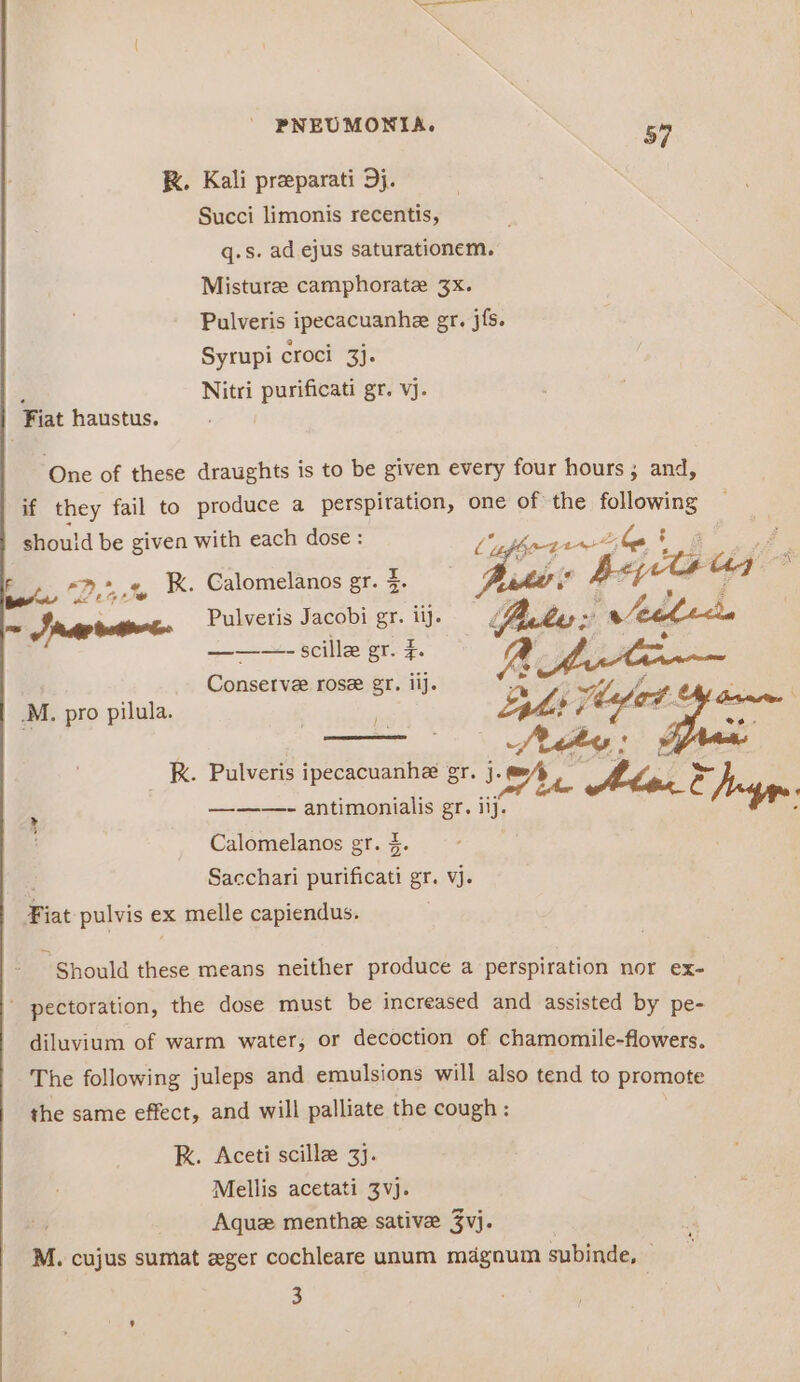 PNEUMONIA. 57
℞. Kali præparati ℈j.
Succi limonis recentis,
q.s. ad ejus saturationem.
Misturæ camphoratæ ʒx.
Pulveris ipecacuanhæ gr. jſs.
Syrupi croci ʒj.
Nitri purificati gr. vj.
Fiat haustus.
One of these draughts is to be given every four hours; and,
if they fail to produce a perspiration, one of the following
should be given with each dose:
℞. Calomelanos gr.
Pulveris Jacobi gr. iij.
———- scillæ gr.
Conservæ rosæ gr. iij.
M. pro pilula.
℞. Pulveris ipecacuanhæ gr. j.
———- antimonialis gr. iij.
Calomelanos gr.
Sacchari purificati gr. vj.
Fiat pulvis ex melle capiendus.
Should these means neither produce a perspiration nor ex-
pectoration, the dose must be increased and assisted by pe-
diluvium of warm water, or decoction of chamomile-flowers.
The following juleps and emulsions will also tend to promote
the same effect, and will palliate the cough:
℞. Aceti scillæ ʒj.
Mellis acetati ʒvj.
Aquæ menthæ sativæ ℥vj.
M. cujus sumat æger cochleare unum magnum subinde,
3